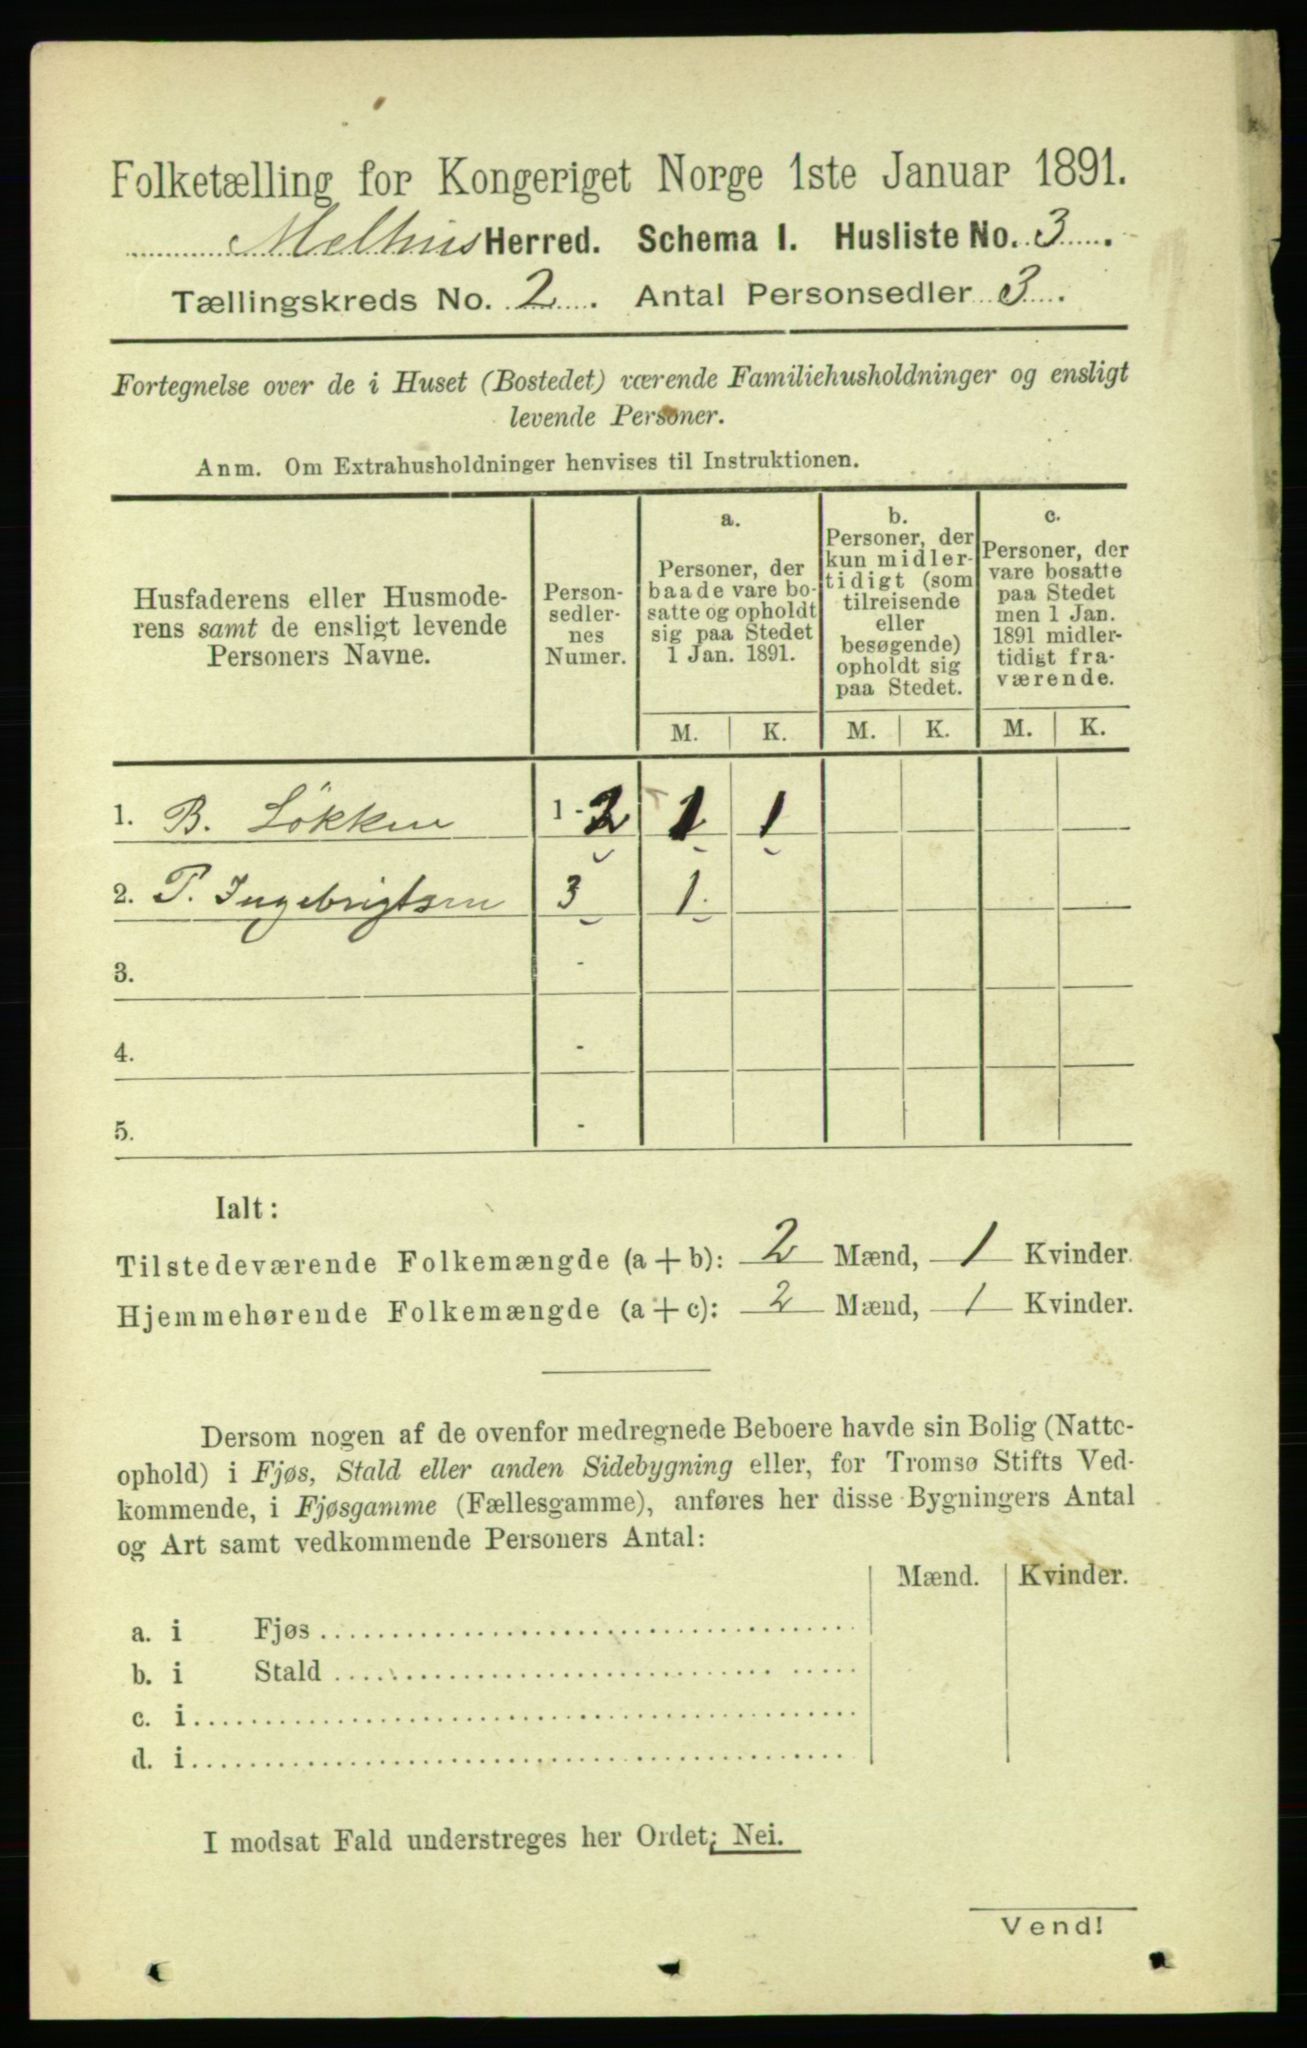 Folketælling for Kongeriget Norge 1ste Januar 1891.
Melhus Herred. Schema I. Husliste No. 3.
Tællingskreds No. 2. Antal Personsedler 3.
Fortegnelse over de i Huset (Bostedet) værende Familiehusholdninger og ensligt
levende Personer.
Anm. Om Extrahusholdninger henvises til Instruktionen.
Husfaderens eller Husmode-
rens samt de ensligt levende
Personers Navne.
Person-
sedler-
nes
Numer.
a.
Personer, der
baade vare bo-
satte og opholdt
sig paa Stedet
1 Jan. 1891.
b.
Personer, der
kun midler-
tidigt (som
tilreisende
eller
besøgende)
opholdt sig
paa Stedet.
c.
Personer, der
vare bosatte
paa Stedet
men 1 Jan.
1891 midler-
tidigt fra-
værende.
M. K. M. K. M. K.
1. B. Lökken 1 - 2 1 1
2. P. Ingebrigtsen 3 1.
3. -
4. -
5. -
Ialt:
Tilstedeværende Folkemængde (a + b): 2 Mænd, 1 Kvinder.
Hjemmehørende Folkemængde (a + c): 2 Mænd, 1 Kvinder.
Dersom nogen af de ovenfor medregnede Beboere havde sin Bolig (Natte-
ophold) i Fjøs, Stald eller anden Sidebygning eller, for Tromsø Stifts Ved-
kommende, i Fjøsgamme (Fællesgamme), anføres her disse Bygningers Antal
og Art samt vedkommende Personers Antal:
Mænd. Kvinder.
a. i Fjøs
b. i Stald
c. i
d. i
I modsat Fald understreges her Ordet: Nei.
Vend!